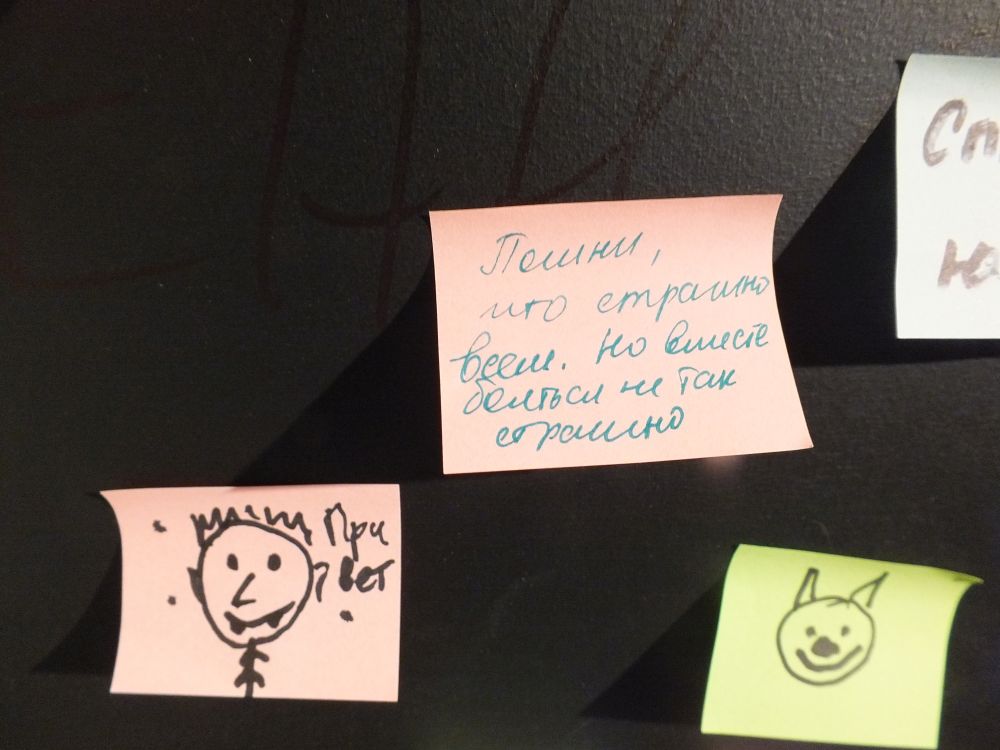 Помни,
что страшно
всем. Но вместе
бояться не так
страшно
При
вет